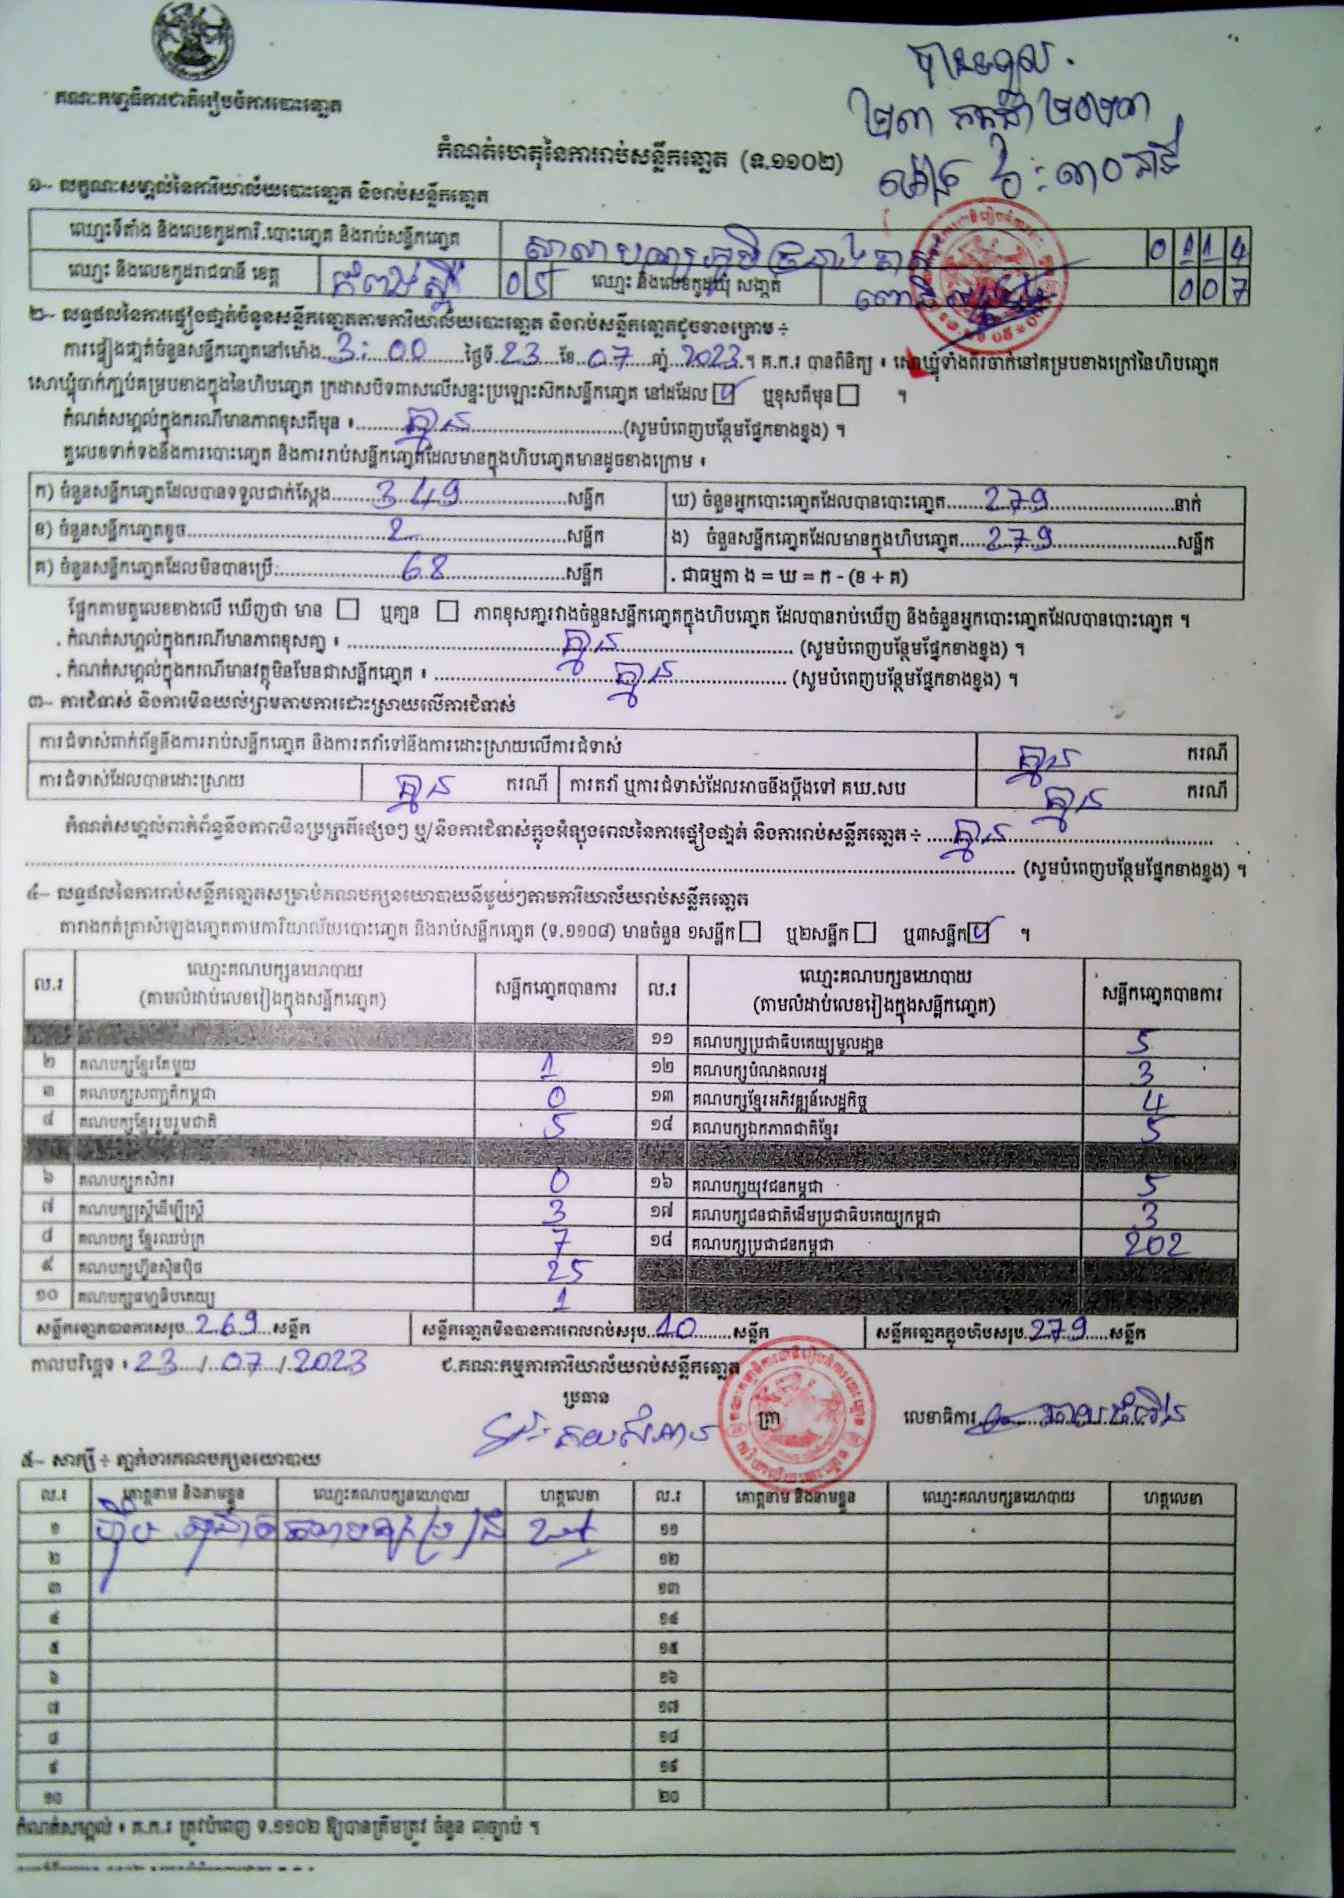 គណៈកម្មាធិការជាតិរៀបចំការបោះឆ្នោត
២៣ កក្កដា ២០២៣
ម៉ោង ៦:៣០នាទី
កំណត់ហេតុនៃការរាប់សន្លឹកឆ្នោត (ទ.១១០២)
១- លក្ខណៈសម្គាល់នៃការិយាល័យបោះឆ្នោត និងរាប់សន្លឹកឆ្នោត
ឈ្មោះទីតាំង និងលេខកូដការិ.បោះឆ្នោត និងរាប់សន្លឹកឆ្នោត 0 1 1 4
ឈ្មោះ និងលេខកូដរាជធានី ខេត្ត កំពង់ស្ពឺ 0 5 ឈ្មោះ និងលេខកូដឃុំ សង្កាត់ 0 0 7
២- លទ្ធផលនៃការផ្ទៀងផ្ទាត់ចំនួនសន្លឹកឆ្នោតតាមការិយាល័យបោះឆ្នោត និងរាប់សន្លឹកឆ្នោតដូចខាងក្រោម ÷
ការផ្ទៀងផ្ទាត់ចំនួនសន្លឹកឆ្នោតនៅម៉ោង 3:00 ថ្ងៃទី 23 ខែ 07 ឆ្នាំ 2023 ។ គ.ក.រ បានពិនិត្យ ៖ សោឃ្មុំទាំងពីរចាក់នៅគម្របខាងក្រៅនៃហិបឆ្នោត
សោឃ្មុំចាក់ភ្ជាប់គម្របខាងក្នុងនៃហិបឆ្នោត ក្រដាសបិទពាសលើសន្ទះប្រឡោះស៊កសន្លឹកឆ្នោត នៅដដែល ☑ ឬខុសពីមុន ☐ ។
កំណត់សម្គាល់ក្នុងករណីមានភាពខុសពីមុន ៖ គ្មាន (សូមបំពេញបន្ថែមផ្នែកខាងខ្នង) ។
តួលេខទាក់ទងនឹងការបោះឆ្នោត និងការរាប់សន្លឹកឆ្នោតដែលមានក្នុងហិបឆ្នោតមានដូចខាងក្រោម ៖
ក) ចំនួនសន្លឹកឆ្នោតដែលបានទទួលជាក់ស្ដែង 349 សន្លឹក ឃ) ចំនួនអ្នកបោះឆ្នោតដែលបានបោះឆ្នោត 279 នាក់
ខ) ចំនួនសន្លឹកឆ្នោតខូច 2 សន្លឹក ង) ចំនួនសន្លឹកឆ្នោតដែលមានក្នុងហិបឆ្នោត 279 សន្លឹក
គ) ចំនួនសន្លឹកឆ្នោតដែលមិនបានប្រើ 68 សន្លឹក . ជាធម្មតា ង = ឃ = ក - (ខ + គ)
ផ្អែកតាមតួលេខខាងលើ ឃើញថា មាន ☐ ឬគ្មាន ☐ ភាពខុសគ្នារវាងចំនួនសន្លឹកឆ្នោតក្នុងហិបឆ្នោត ដែលបានរាប់ឃើញ និងចំនួនអ្នកបោះឆ្នោតដែលបានបោះឆ្នោត ។
. កំណត់សម្គាល់ក្នុងករណីមានភាពខុសគ្នា ៖ គ្មាន (សូមបំពេញបន្ថែមផ្នែកខាងខ្នង) ។
. កំណត់សម្គាល់ក្នុងករណីមានវត្ថុមិនមែនជាសន្លឹកឆ្នោត ៖ គ្មាន (សូមបំពេញបន្ថែមផ្នែកខាងខ្នង) ។
៣- ការជំទាស់ និងការមិនយល់ព្រមតាមការដោះស្រាយលើការជំទាស់
ការជំទាស់ពាក់ព័ន្ធនឹងការរាប់សន្លឹកឆ្នោត និងការតវ៉ាទៅនឹងការដោះស្រាយលើការជំទាស់ គ្មាន ករណី
ការជំទាស់ដែលបានដោះស្រាយ គ្មាន ករណី ការតវ៉ា ឬការជំទាស់ដែលអាចនឹងប្ដឹងទៅ គឃ.សប គ្មាន ករណី
កំណត់សម្គាល់ពាក់ព័ន្ធនឹងភាពមិនប្រក្រតីផ្សេងៗ ឬ/និងការជំទាស់ក្នុងអំឡុងពេលនៃការផ្ទៀងផ្ទាត់ និងការរាប់សន្លឹកឆ្នោត ÷ គ្មាន
(សូមបំពេញបន្ថែមផ្នែកខាងខ្នង) ។
៤- លទ្ធផលនៃការរាប់សន្លឹកឆ្នោតសម្រាប់គណបក្សនយោបាយនីមួយៗតាមការិយាល័យរាប់សន្លឹកឆ្នោត
តារាងកត់ត្រាសំឡេងឆ្នោតតាមការិយាល័យបោះឆ្នោត និងរាប់សន្លឹកឆ្នោត (ទ.១១០៨) មានចំនួន ១សន្លឹក ☐ ឬ២សន្លឹក ☐ ឬ៣សន្លឹក ☑ ។
ល.រ ឈ្មោះគណបក្សនយោបាយ (តាមលំដាប់លេខរៀងក្នុងសន្លឹកឆ្នោត) សន្លឹកឆ្នោតបានការ ល.រ ឈ្មោះគណបក្សនយោបាយ (តាមលំដាប់លេខរៀងក្នុងសន្លឹកឆ្នោត) សន្លឹកឆ្នោតបានការ
១១ គណបក្សប្រជាធិបតេយ្យមូលដ្ឋាន 5
២ គណបក្សខ្មែរតែមួយ 1 ១២ គណបក្សបំណងពលរដ្ឋ 3
៣ គណបក្សសញ្ជាតិកម្ពុជា 0 ១៣ គណបក្សខ្មែរអភិវឌ្ឍន៍សេដ្ឋកិច្ច 4
៤ គណបក្សខ្មែររួបរួមជាតិ 5 ១៤ គណបក្សឯកភាពជាតិខ្មែរ 5
៦ គណបក្សកសិករ 0 ១៦ គណបក្សយុវជនកម្ពុជា 5
៧ គណបក្សស្ត្រីដើម្បីស្ត្រី 3 ១៧ គណបក្សជនជាតិដើមប្រជាធិបតេយ្យកម្ពុជា 3
៨ គណបក្ស ខ្មែរឈប់ក្រ 7 ១៨ គណបក្សប្រជាជនកម្ពុជា 202
៩ គណបក្សហ្វ៊ុនស៊ិនប៉ិច 25
១០ គណបក្សធម្មាធិបតេយ្យ 1
សន្លឹកឆ្នោតបានការសរុប 269 សន្លឹក សន្លឹកឆ្នោតមិនបានការពេលរាប់សរុប 10 សន្លឹក សន្លឹកឆ្នោតក្នុងហិបសរុប 279 សន្លឹក
កាលបរិច្ឆេទ ៖ 23 / 07 / 2023 ជ.គណៈកម្មការការិយាល័យរាប់សន្លឹកឆ្នោត
ប្រធាន
ត្រា លេខាធិការ
៥- សាក្សី ÷ ភ្នាក់ងារគណបក្សនយោបាយ
ល.រ គោត្តនាម និងនាមខ្លួន ឈ្មោះគណបក្សនយោបាយ ហត្ថលេខា ល.រ គោត្តនាម និងនាមខ្លួន ឈ្មោះគណបក្សនយោបាយ ហត្ថលេខា
១ ១១
២ ១២
៣ ១៣
៤ ១៤
៥ ១៥
៦ ១៦
៧ ១៧
៨ ១៨
៩ ១៩
១០ ២០
កំណត់សម្គាល់ ៖ គ.ក.រ ត្រូវបំពេញ ទ.១១០២ ឱ្យបានត្រឹមត្រូវ ចំនួន ៣ច្បាប់ ។